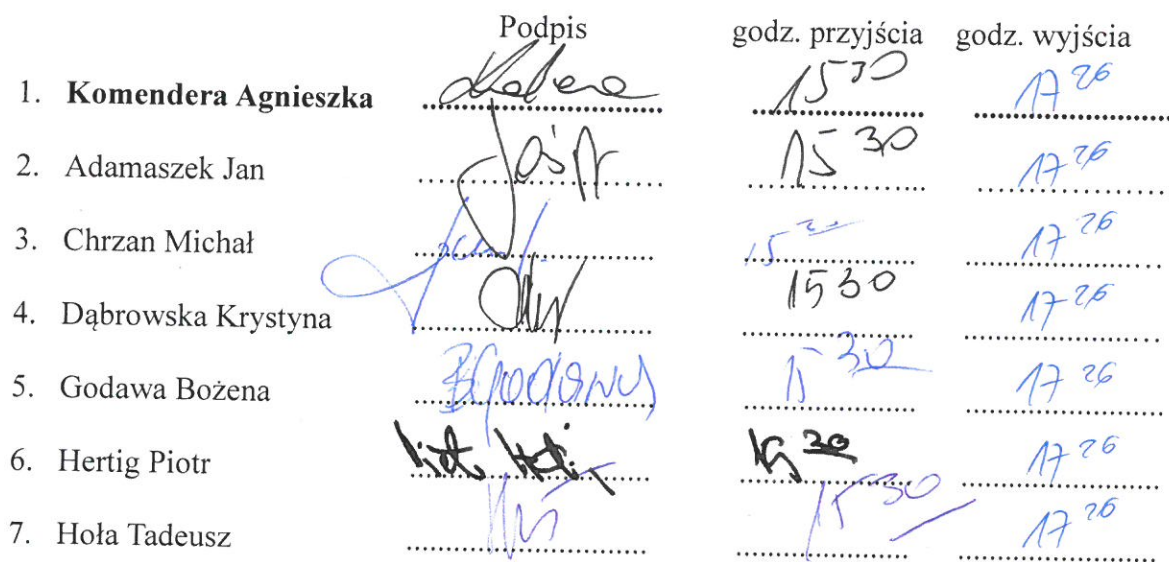 Podpis godz. przyjścia godz. wyjścia
1. Komendera Agnieszka 15 30 17 26
2. Adamaszek Jan 15 30 17 26
3. Chrzan Michał 15 30 17 26
4. Dąbrowska Krystyna 15 30 17 26
5. Godawa Bożena BGodawa 15 30 17 26
6. Hertig Piotr 15 30 17 26
7. Hoła Tadeusz 15 30 17 26